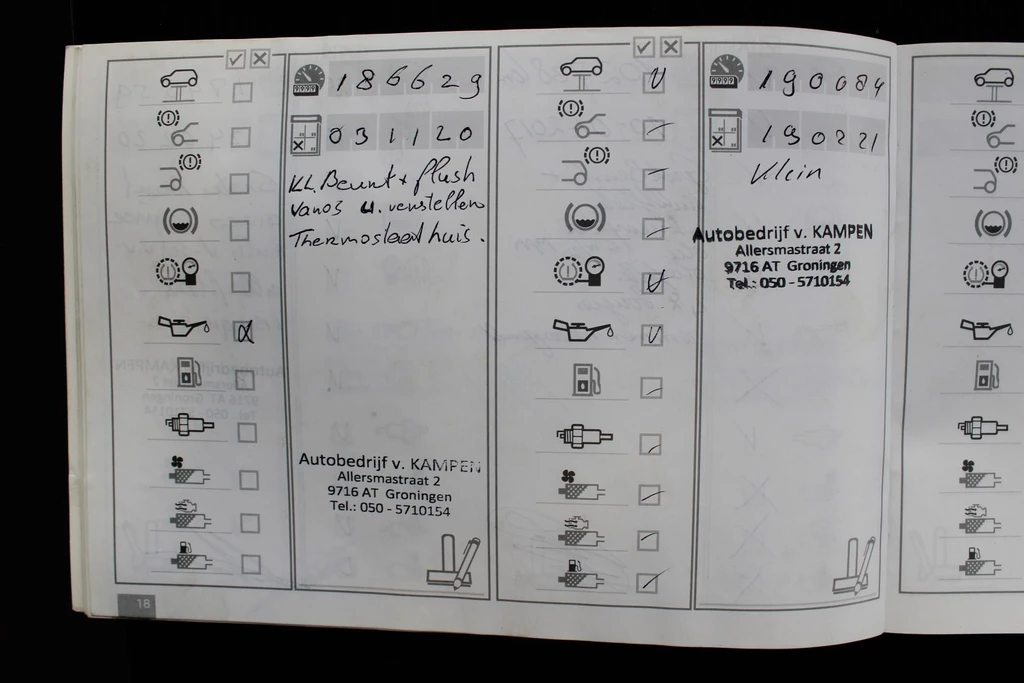 186629
031120
KL. Beurt + flush
Vanos u. verstellen
Thermostaat huis.
Autobedrijf v. KAMPEN
Allersmastraat 2
9716 AT Groningen
Tel.: 050 - 5710154
18
190084
190221
Klein
Autobedrijf v. KAMPEN
Allersmastraat 2
9716 AT Groningen
Tel.: 050 - 5710154